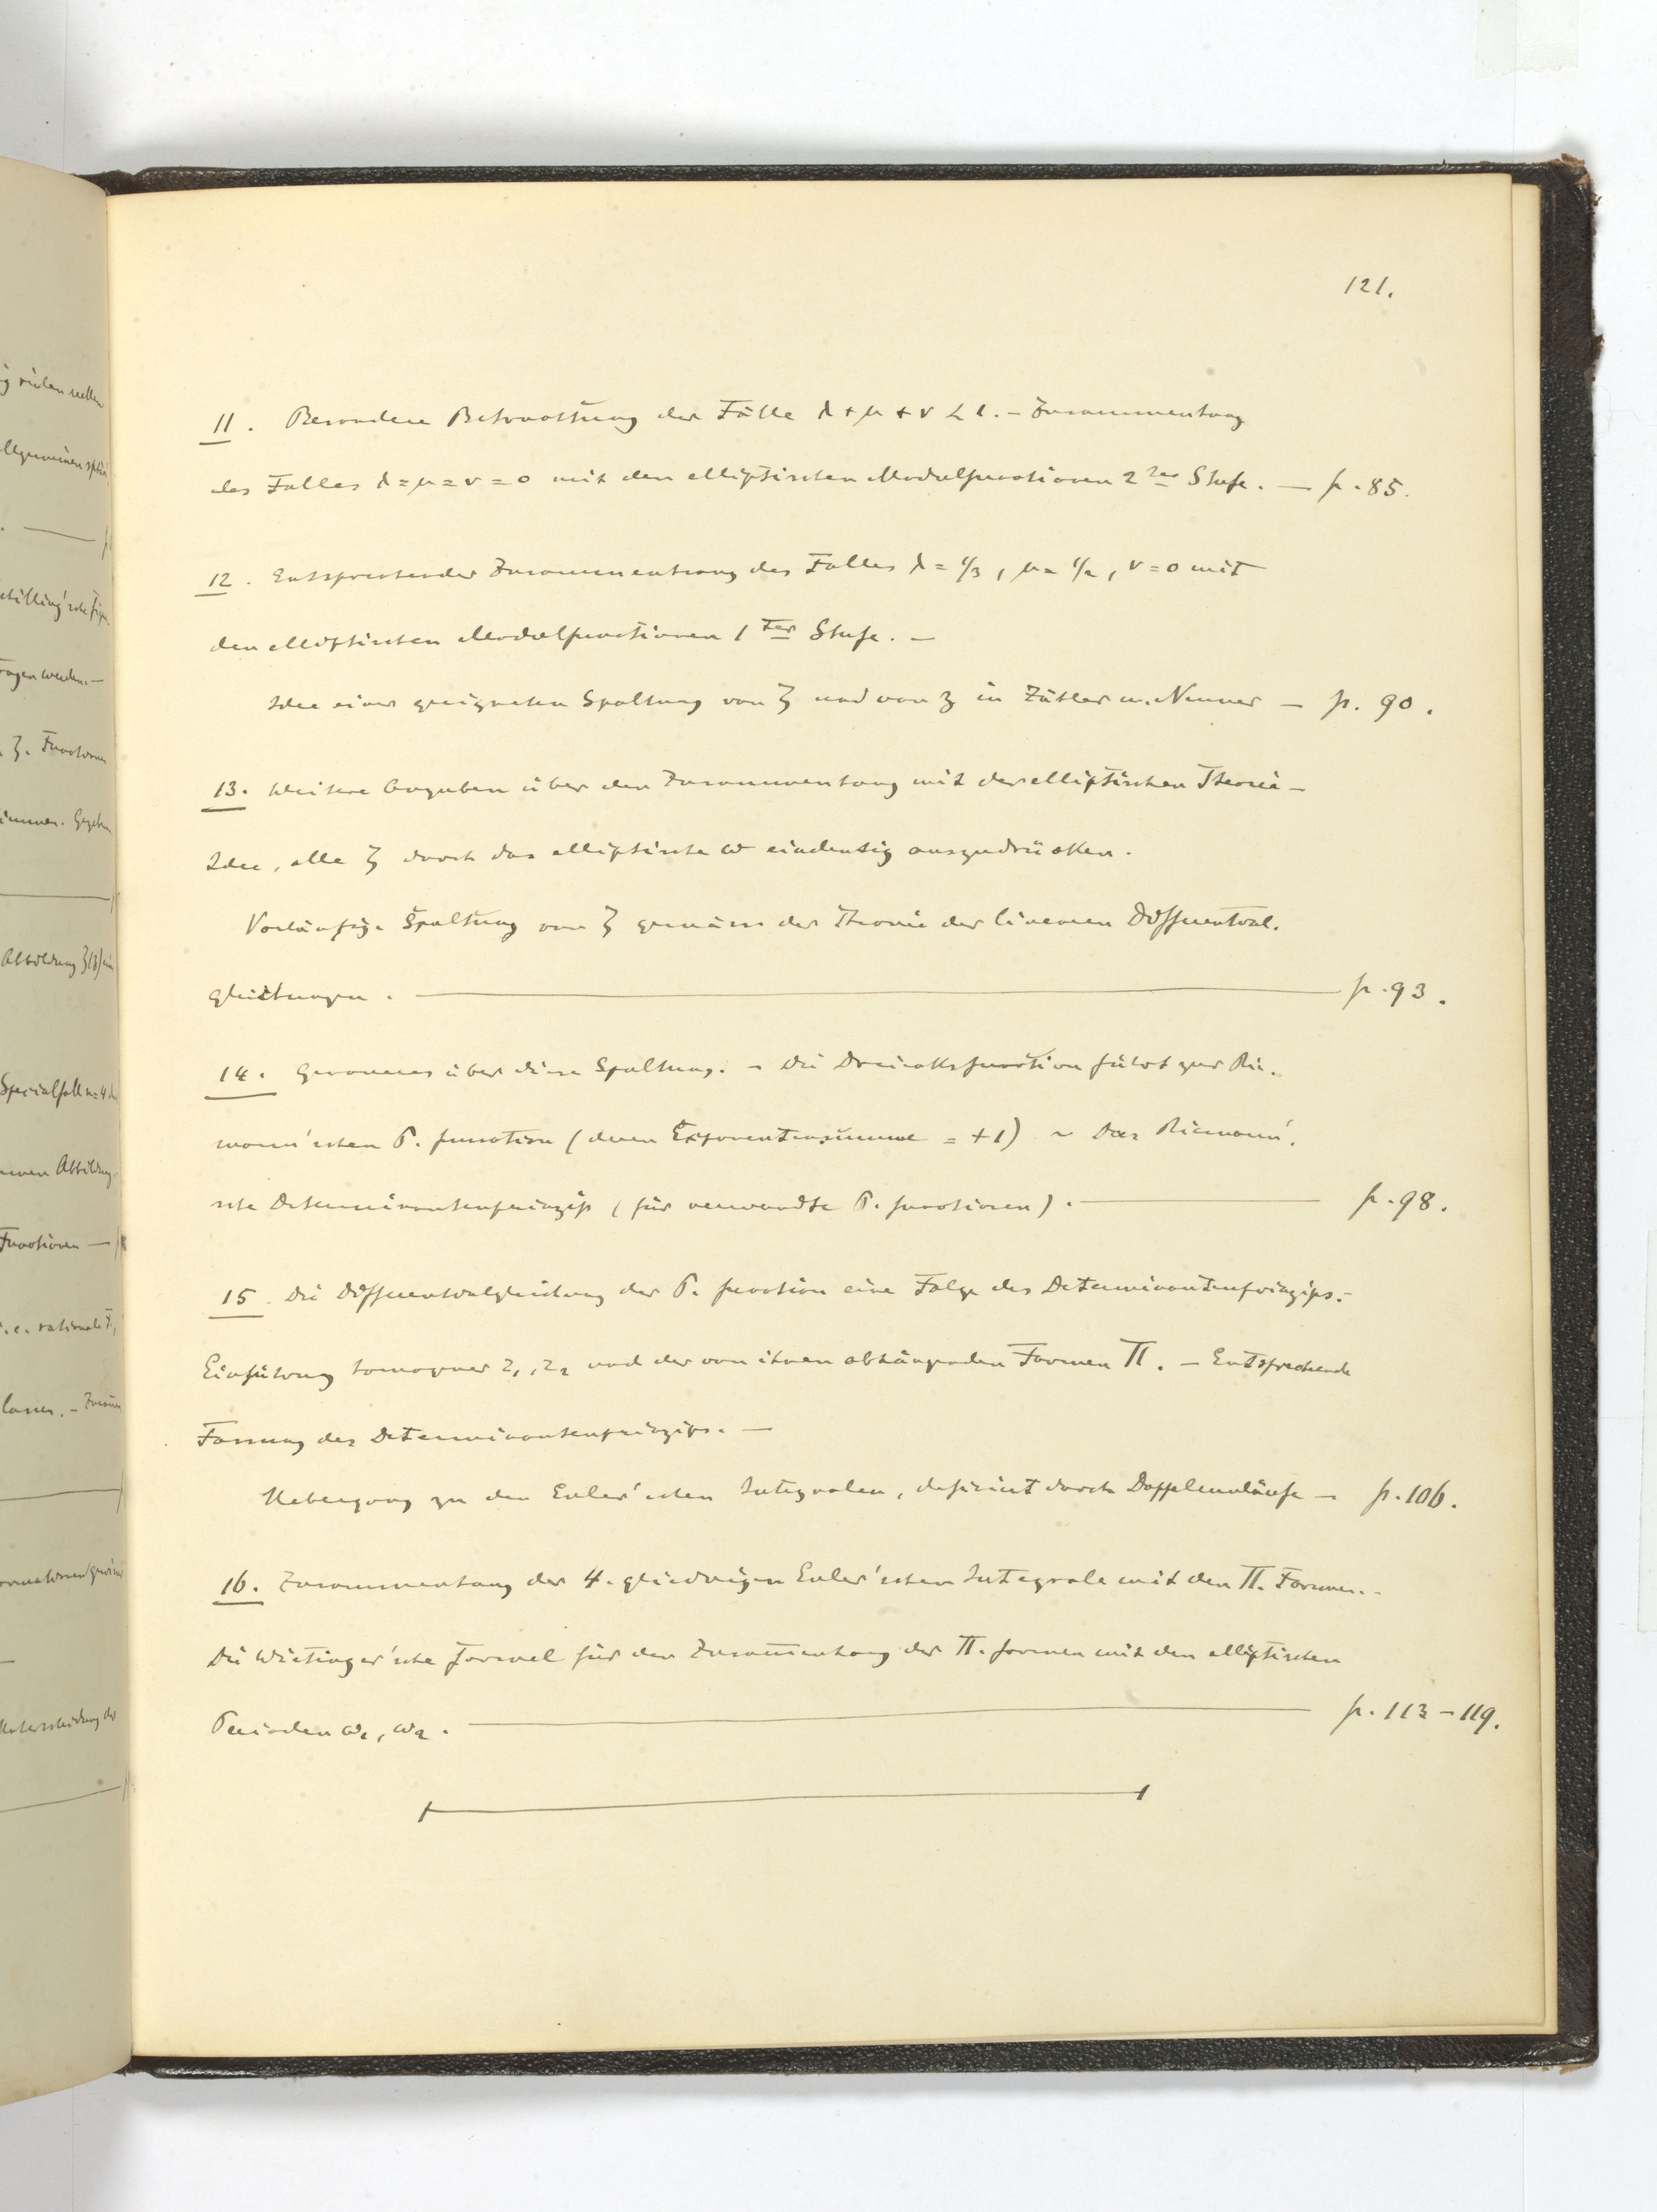 121.
11. Besondere Betrachtung der Fälle λ+μ+ν < 1. – Zusammenhang
des Falles λ=μ=ν=0 mit den elliptischen Modulfunctionen 2ter Stufe. — p. 85.
12. Entsprechender Zusammenhang des Falles λ=1/3, μ=1/2, ν=0 mit
den elliptischen Modulfunctionen 1ter Stufe. –
Idee einer geeigneten Spaltung von ζ und von z in Zähler u. Nenner – p. 90.
13. Weitere Angaben über den Zusammenhang mit der elliptischen Theorie –
Idee, alle ζ durch das elliptische ω eindeutig auszudrücken.
Vorläufige Spaltung von ζ gemäss der Theorie der linearen Differential-
gleichungen. — p. 93.
14. Genaueres über diese Spaltung. – Die Dreiecksfunction führt zur Rie-
mann'schen P. function (deren Exponentensumme = +1) – Das Riemann'-
sche Determinantenprinzip (für verwandte P. functionen). — p. 98.
15. Die Differentialgleichung der P. function eine Folge des Determinantenprinzips. –
Einführung homogener z1, z2 und der von ihnen abhängenden Formen Π. – Entsprechende
Fassung des Determinantenprinzips. –
Uebergang zu den Euler'schen Integralen, definirt durch Doppelumläufe – p. 106.
16. Zusammenhang der 4-gliedrigen Euler'schen Integrale mit den Π. Formen. –
Die Wirtinger'sche Formel für den Zusammenhang der Π. formen mit den elliptischen
Perioden ω1, ω2. — p. 113 – 119.